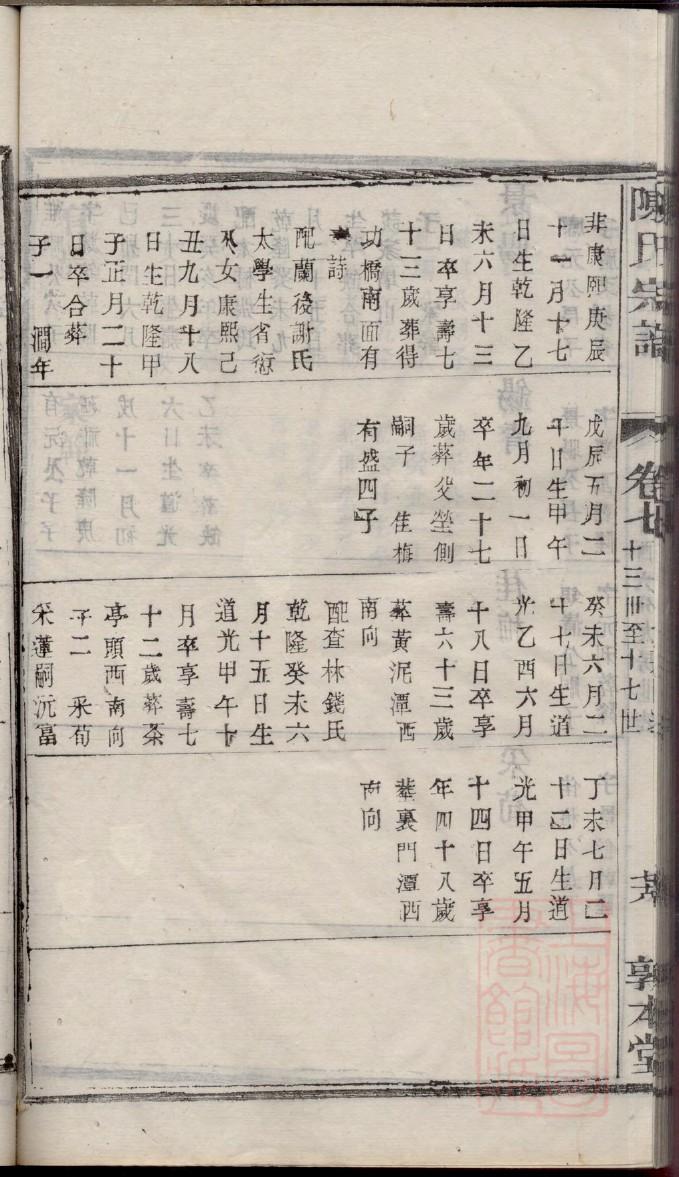 陳氏宗譜
卷七
十三世至十七世
敦本堂
非康熙庚辰
十一月十七
日生乾隆乙
未六月十三
日卒享壽七
十三歲葬得
功橋南面有
詩
配蘭後謝氏
太學生省
女康熙己
丑九月十八
日生乾隆甲
子正月二十
日卒合葬
子一 澗年
戊辰五月二
十日生甲午
九月初一日
卒年二十七
歲葬父塋側
嗣子 佳梅
有盛四子
癸未六月二
十七日生道
光乙酉六月
十八日卒享
壽六十三歲
葬黃泥潭西
南向
配查林錢氏
乾隆癸未六
月十五日生
道光甲午十
月卒享壽七
十二歲葬茶
亭頭西南向
子二 采荀
采蓮嗣沅富
丁未七月二
十二日生道
光甲午五月
十四日卒享
年四十八歲
葬裏門潭西
南向
上海圖書館藏